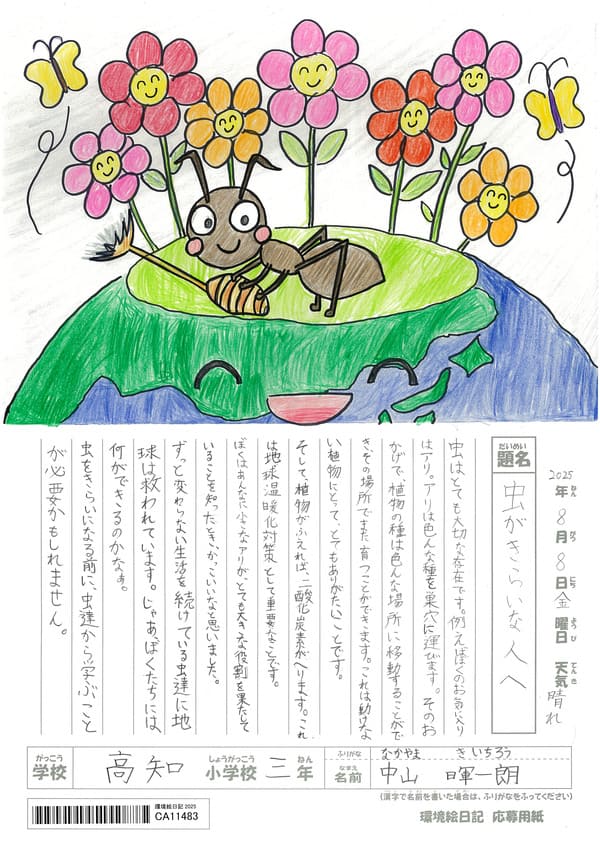 2025年ねん 8月がつ 8日にち 金曜日ようび 天気てんき 晴れ
だいめい
題名
虫がきらいな人へ
虫はとても大切な存在です。例えばぼくのお気に入り
はアリ。アリは色んな種を巣穴に運びます。そのお
かげで、植物の種は色んな場所に移動することがで
き、その場所でまた育つことができます。これは動けな
い植物にとって、とてもありがたいことです。
そして、植物がふえれば、二酸化炭素がへります。これ
は地球温暖化対策として重要なことです。
ぼくはあんなに小さなアリが、とても大きな役割を果たして
いることを知ったとき、かっこいいなと思いました。
ずっと変わらない生活を続けている虫達に地
球は救われています。じゃあ、ぼくたちには
何ができるのかなぁ。
虫をきらいになる前に、虫達から学ぶこと
が必要かもしれません。
がっこう
学校
高知
しょうがっこう ねん
小学校 三年
ふりがな なかやま きいちろう
なまえ
名前 中山 暉一朗
(漢字で名前を書いた場合は、ふりがなをふってください)
環境絵日記 2025
CA11483
環境絵日記 応募用紙